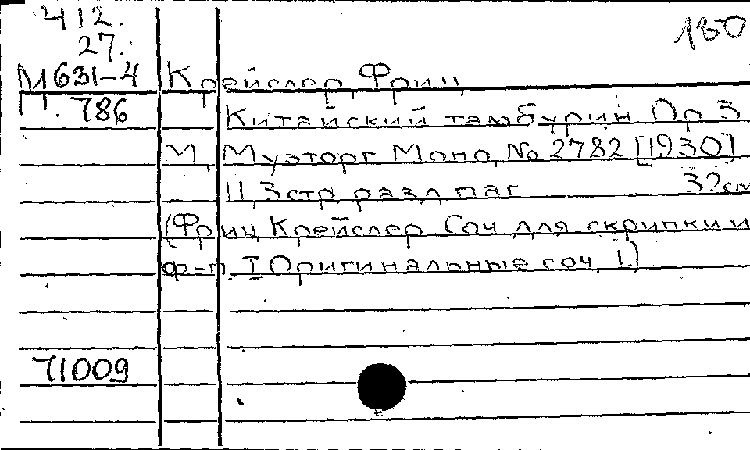 412.
27.
180
М631-4 Крейслер, Фриц
П. 786
Китайский тамбурин Ор 3
М, Музторг Моно, № 2782 [1930]
11, 3 стр разд паг 32 см
(Фриц Крейслер Соч для скрипки и
ф-п. I Оригинальные соч, 1.)
71009